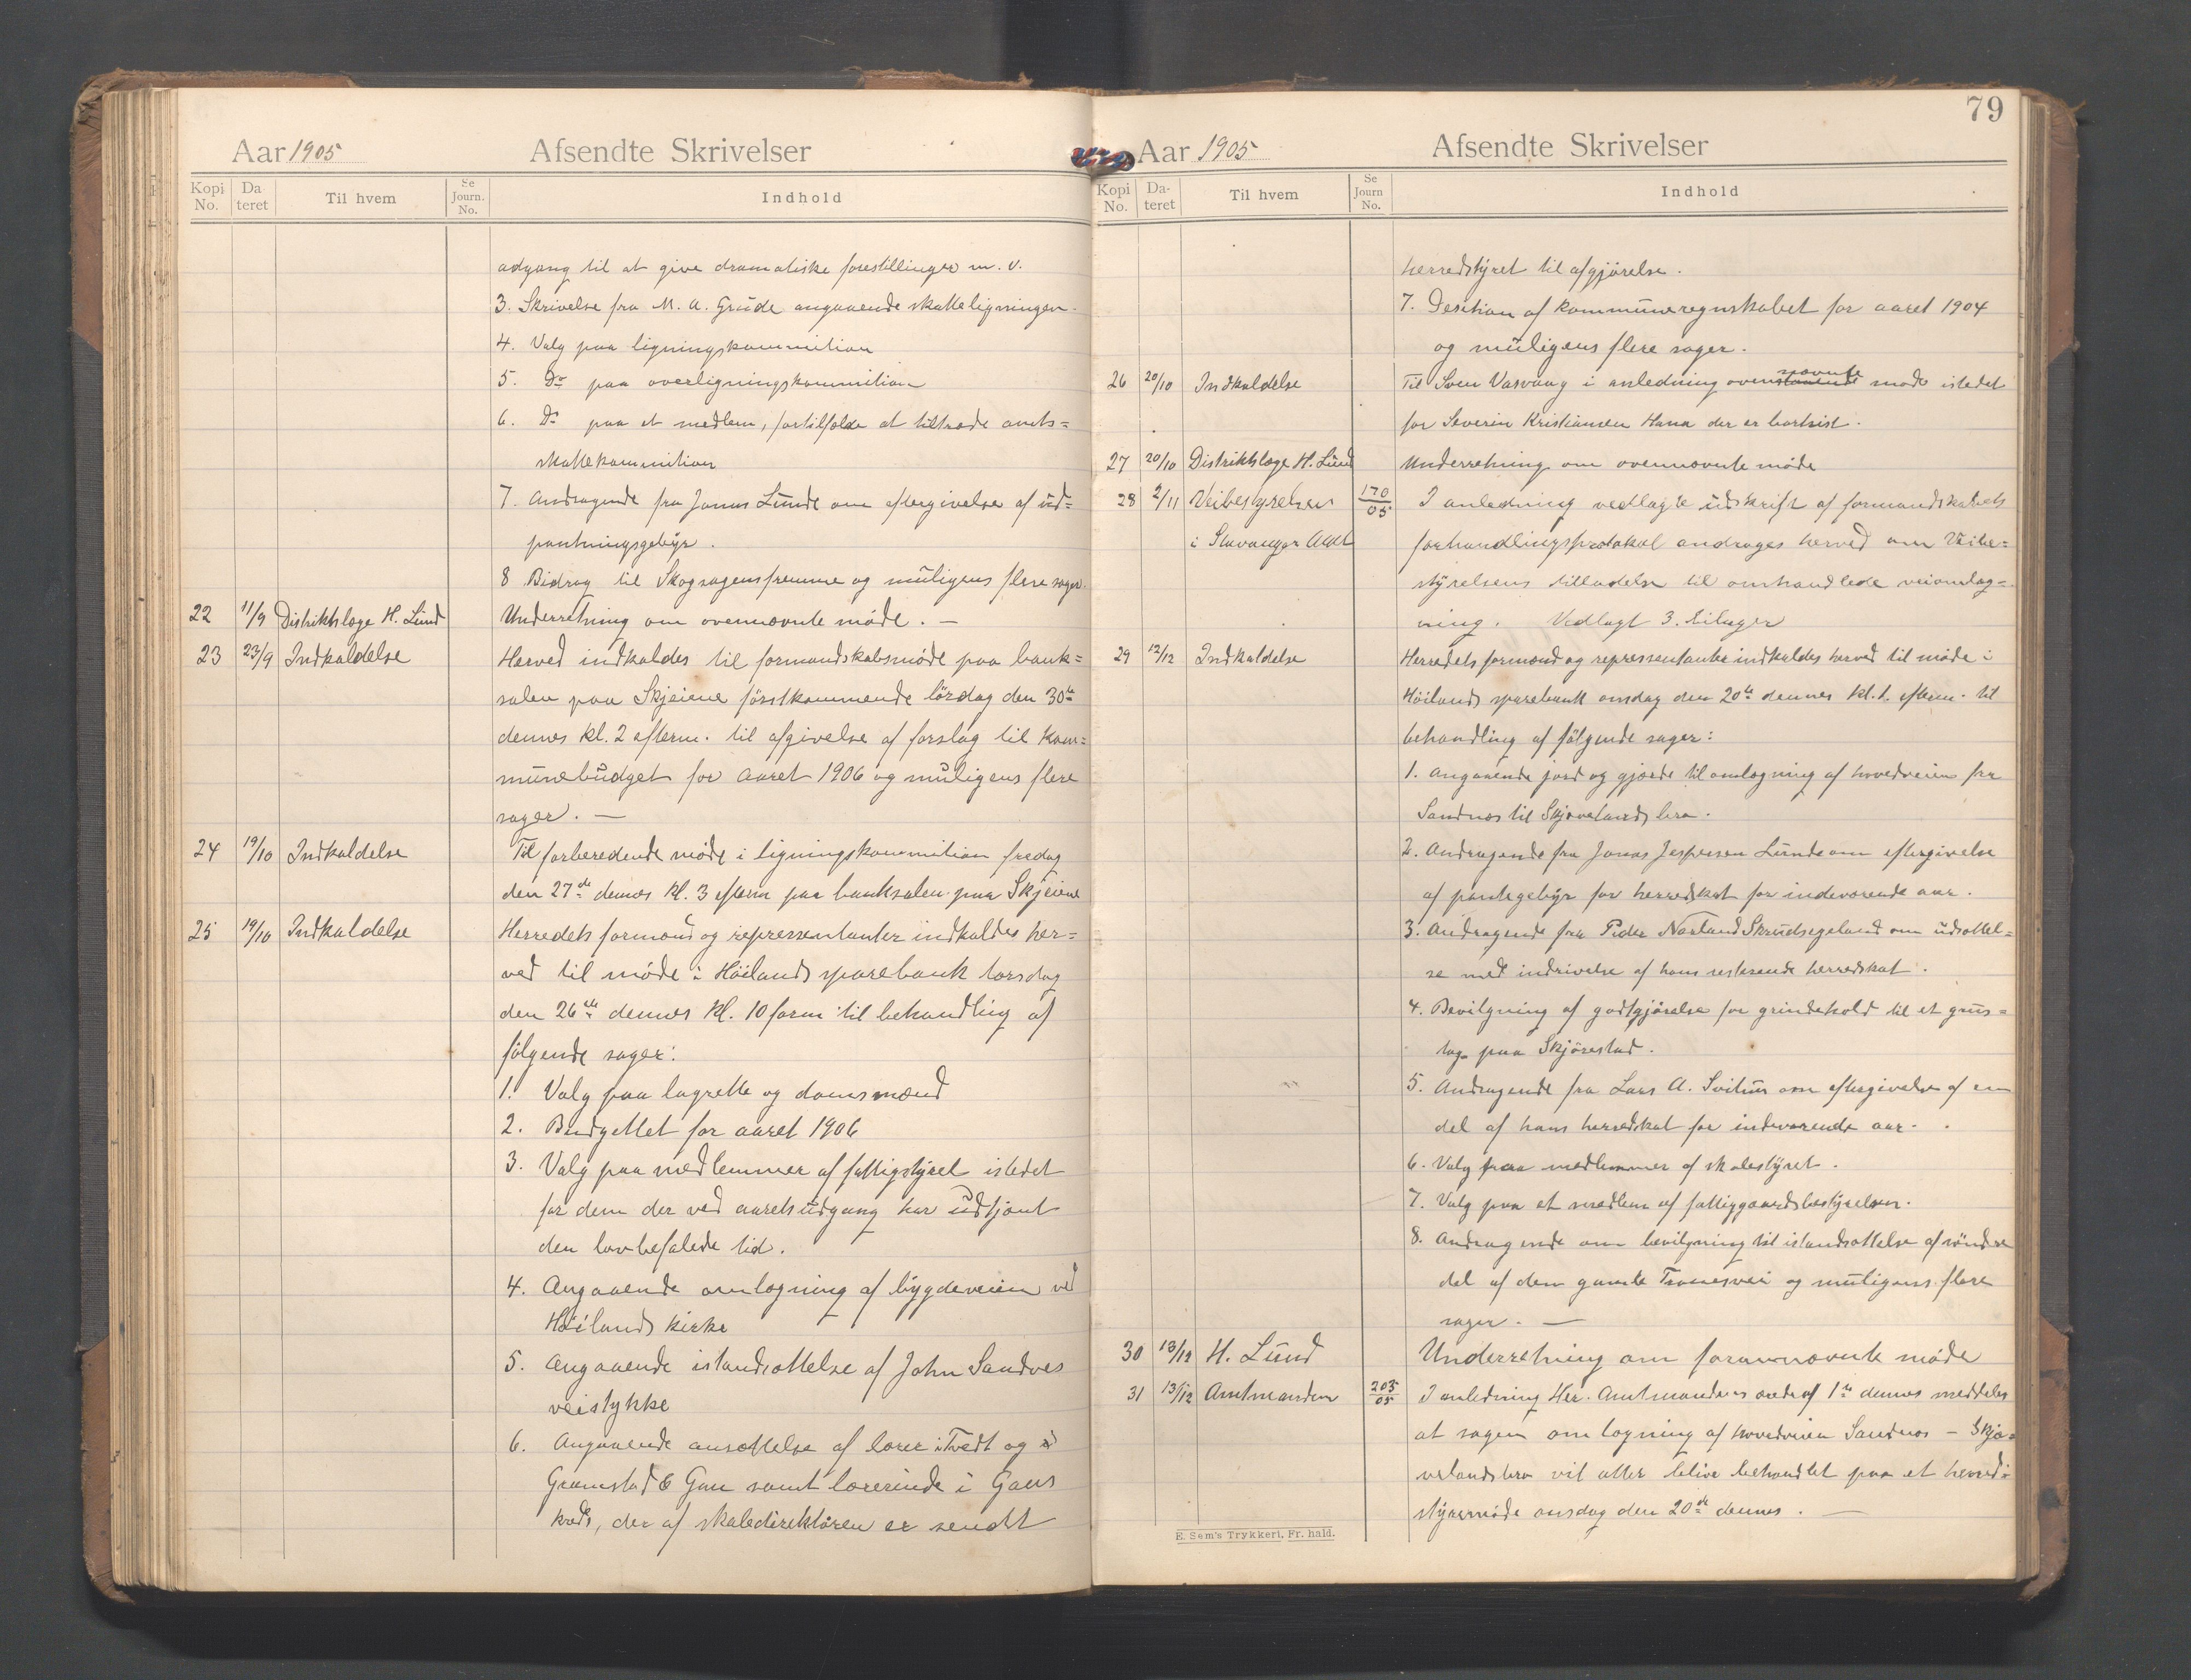 Aar 1905 Afsendte Skrivelser
Kopi No. Da teret Til hvem Se Journ. No. Indhold
adgang til at give dramatiske forestillinger m. v.
3. Skrivelse fra M. A. Grude angaaende skatteligningen.
4. Valg paa ligningskommition
5. Do paa overligningskommition
6. Do paa et medlem, fortilfælde at tiltræde amts=
skattekommition
7. Andragende fra Jonas Lunde om eftergivelse af ud=
pantningsgebyr.
8 Bidrag til Skogsagens fremme og muligens flere sager.
22 11/9 Distriktslæge H. Lund Underretning om ovennævnte møde. —
23 23/9 Indkaldelse Herved indkaldes til formandskabsmøde paa bank=
salen paa Skjeiene førstkommende lørdag den 30te
dennes kl. 2 efterm. til afgivelse af forslag til kom=
munebudget for aaret 1906 og muligens flere
sager. —
24 19/10 Indkaldelse Til forberedende møde i ligningskommition fredag
den 27de dennes kl. 3 efterm paa banksalen paa Skjeiene
25 19/10 Indkaldelse Herredets formænd og repressentanter indkaldes her=
ved til møde i Høilands sparebank torsdag
den 26de dennes kl. 10 form til behandling af
følgende sager:
1. Valg paa lagrette og domsmænd
2. Budgettet for aaret 1906
3. Valg paa medlemmer af fattigstyret istedet
for dem der ved aarets udgang har udtjent
den lovbefalede tid.
4. Angaaende omlægning af bygdeveien ved
Høilands kirke
5. Angaaende istandsættelse af John Sandves
veistykke
6. Angaaende ansættelse af lærer i Tvedt og i
Gramstad & Gan samt lærerinde i Gans
kreds, der af skoledirektøren er sendt
79
Aar 1905 Afsendte Skrivelser
Kopi No. Da- teret Til hvem Se Journ No. Indhold
herredstyret til afgjørelse.
7. Desition af kommuneregnskabet for aaret 1904
og muligens flere sager.
nævnte
26 20/10 Indkaldelse Til Sven Varvaag i anledning ovenstaaende møde istedet
for Severin Kristiansen Hana der er bortreist.
27 20/10 Distriktslæge H. Lund Underretning om ovennævnte møde
28 2/11 Veibestyrelsen 170/05 I anledning vedlagte udskrift af formandskabets
i Stavanger Amt forhandlingsprotokol andrages herved om Veibe=
styrelsens tilladelse til omhandlede veiomlæg=
ning. Vedlagt 3. bilager
29 12/12 Indkaldelse Herredets formænd og repressentanter indkaldes herved til møde i
Høilands sparebank onsdag den 20de dennes kl. 1. efterm. til
behandling af følgende sager:
1. Angaaende jord og gjærde til omlægning af hovedveien fra
Sandnæs til Skjævelands bro.
2. Andragende fra Jonas Jespersen Lunde om eftergivelse
af pantegebyr for herredskat for indeværende aar.
3. Andragende fra Peder Nærland Skrudsegeland om udsættel=
se med indrivelse af hans resterende herredskat.
4. Bevilgning af godtgjørelse for grindehold til et grus=
tag paa Skjørestad.
5. Andragende fra Lars A. Svihus om eftergivelse af en
del af hans herredskat for indeværende aar.
6. Valg paa medlemmer af skolestyret.
7. Valg paa et medlem af fattiggaardsbestyrelsen.
8. Andragende om bevilgning til istandsættelse af søndre
del af den gamle Tronesvei og muligens flere
sager. —
30 13/12 H. Lund Underretning om forannævnte møde
31 13/12 Amtmanden 203/05 I anledning Hr. Amtmandens ærede af 1ste dennes meddeles
at sagen omlægning af hovedveien Sandnæs - Skjæ=
velandsbro vil atter blive behandlet paa et herred=
styremøde onsdag den 20de dennes. —
E. Sem's Trykkeri, Fr. hald.